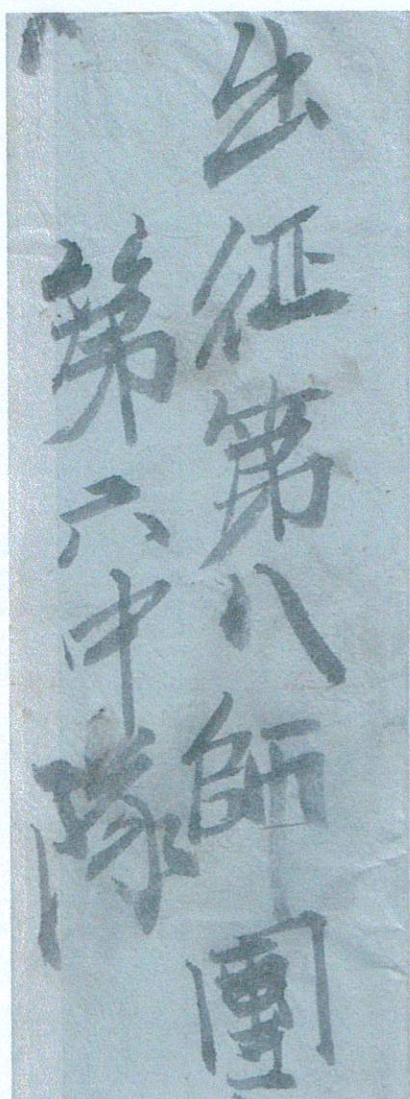 出征第八師團
第六中隊